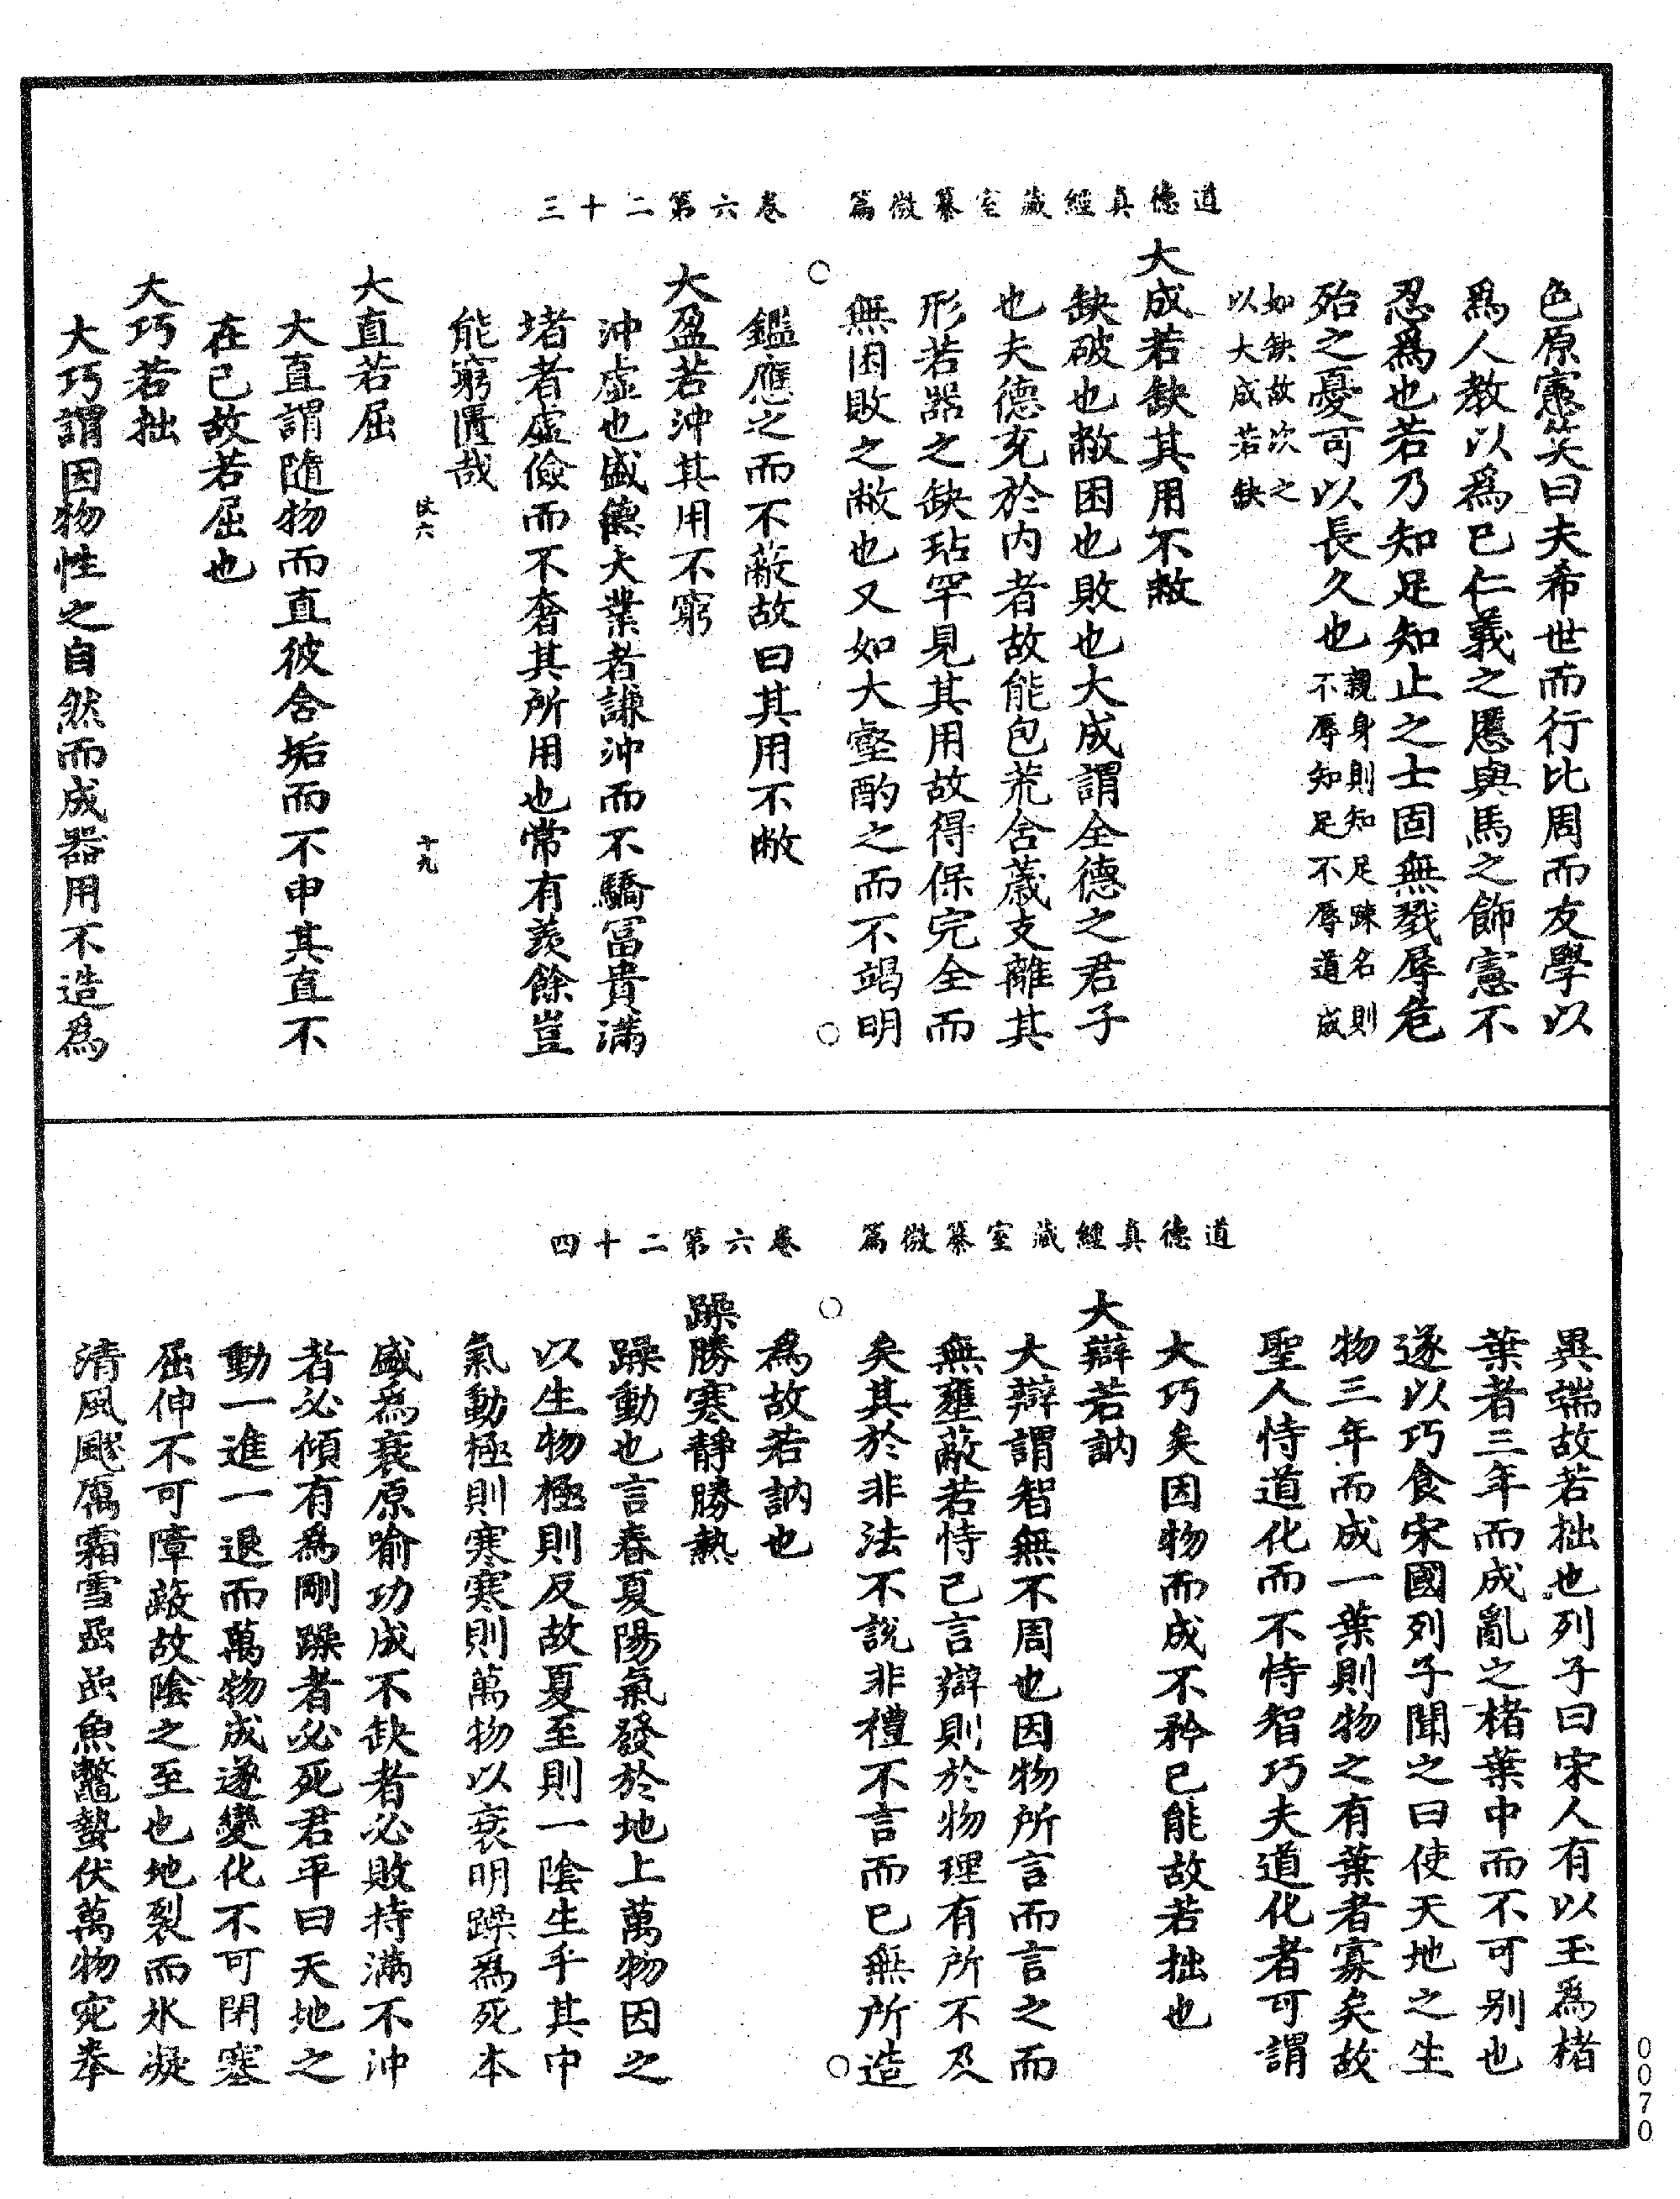 道德真經藏室纂微篇　卷六第二十三
色原憲笑曰夫希世而行比周而友學以
爲人教以爲已仁義之慝與馬之飾憲不
忍爲也若乃知足知止之士固無戮辱危
殆之憂可以長久也親身則知足踈名則不辱知足不辱道成
如缺故次之以大成若缺
大成若缺其用不敝
缺破也敝困也敗也大成謂全德之君子
也夫德充於内者故能包荒含薉支離其
形若器之缺玷罕見其用故得保完全而
無困敗之敝也又如大壑酌之而不竭明
鑑應之而不蔽故曰其用不敝
大盈若沖其用不窮
沖虛也盛德大業者謙沖而不驕冨貴滿
堵者虛儉而不奢其所用也常有羨餘豈
能窮匱哉
伎六　十九
大直若屈
大直謂隨物而直彼含垢而不申其直不
在已故若屈也
大巧若拙
大巧謂因物性之自然而成器用不造爲
道德真經藏室纂微篇　卷六第二十四
異端故若拙也列子曰宋人有以玉爲楮
葉者三年而成亂之楮葉中而不可别也
遂以巧食宋國列子聞之曰使天地之生
物三年而成一葉則物之有葉者寡矣故
聖人恃道化而不恃智巧夫道化者可謂
大巧矣因物而成不矜已能故若拙也
大辯若訥
大辯謂智無不周也因物所言而言之而
無壅蔽若恃己言辯則於物理有所不及
矣其於非法不說非禮不言而已無所造
爲故若訥也
躁勝寒靜勝熱
躁動也言春夏陽氣發於地上萬物因之
以生物極則反故夏至則一陰生乎其中
氣動極則寒寒則萬物以衰明躁爲死本
盛爲衰原喻功成不缺者必敗持滿不沖
者必傾有爲剛躁者必死君平曰天地之
動一進一退而萬物成遂變化不可閉塞
屈伸不可障蔽故陰之至也地裂而氷凝
清風飈厲霜雪嵒嵒魚鼈蟄伏萬物宛拳
0070